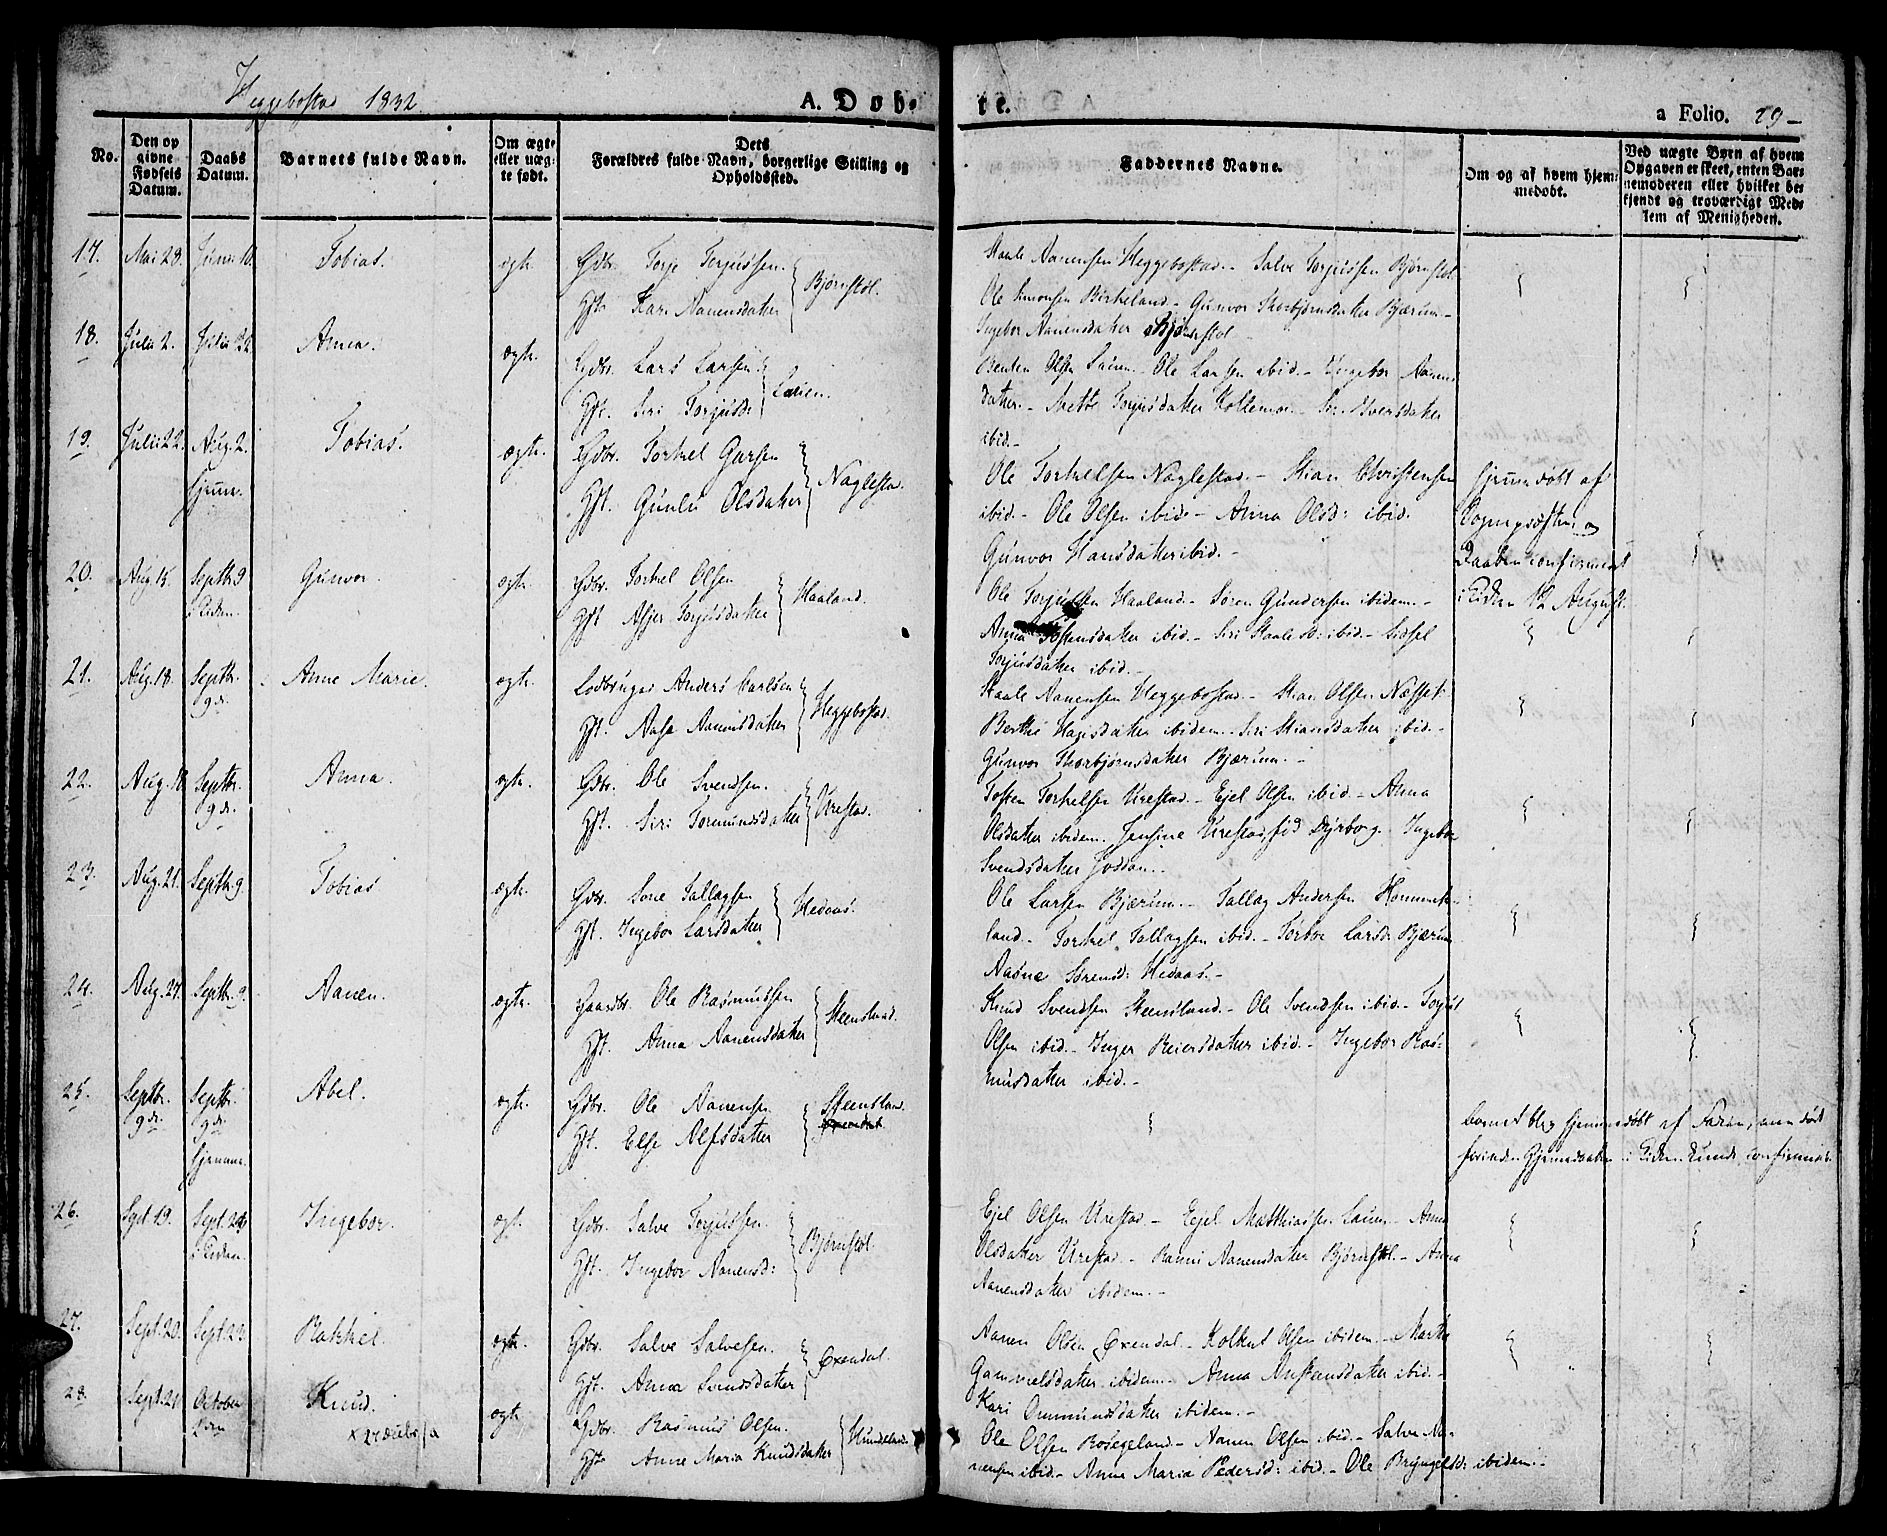 Heggebostad 1832.
A. Døb-
te.
a Folio. 29-
No.
Den op
givne
Fødsels
Datum.
Daabs
Datum.
Barnets fulde Navn.
Om ægte
eller uæg-
te født.
Dets
Forældres fulde Navn, borgerlige Stilling og
Opholdssted.
Faddernes Navne.
Om og af hvem hjem-
medøbt.
Ved uægte Børn af hvem
Opgaven er skeet, enten Bar-
nemoderen eller hvilket be-
kjendt og troværdigt Med-
lem af Menigheden.
17. Mai 28. Juni 10. Tobias. ægte.
Gdbr. Torje Terjussen.
Gjt. Kari Aanensdatter
Bjørnstøl.
Staale Aanensen Heggebostad. - Salve Torjussen Bjørnstøl.
Ole Simonsen Birkeland - Gunvor Thorbjørnsdatter Bjærum -
Ingebor Aanensdatter Bjørnstøl -
18. Julii 2. Julii 22. Anna. ægte.
Gdbr. Lars Larsen.
Gjt. Siri Torjusd:
Lauen.
Benten Olsen Lauen. - Ole Larsen ibid. - Ingebor Aanens
datter. - Torjusdatter - Siri Iversdatter
ibid. -
19. Julii 22. Aug. 2. Hjemme. Tobias. ægte.
Gdbr. Torkel Garsen
Gjt. Gunlu Olsdatter
Naglestad.
Ole Torkelsen Naglestad. - Stian Christensen
ibid. - Ole Olsen ibid - Anna Olsd: ibid.
Gunvor Hansdatter ibid. -
hjemmedøbt af
Sognepræsten og
Daaben confirmeret
i Kirken 12 August.
20. Aug. 15. Septbr. 9 i Kirken. Gunvor. ægte.
Gdbr. Torkel Olsen
Gjt. Asjer Torjusdatter
Haaland.
Ole Torjussen Haaland. - Søren Gundersen ibidem. -
Anna Tostensdatter ibid. - Siri Staalesd: ibid - Sidsel
Torjusdatter ibid. -
21. Aug. 18. Septbr. 9de. Anne Marie. ægte.
Lodbruger Anders Carlsen
Gjt. Aasa Aanensdatter
Heggebostad.
Staale Aanensen Heggebostad. - Stian Olsen Næsset
Berthe Hansdatter ibidem. - Siri Stiansdatter ibid. -
Gunvor Thorbjørnsdatter Bjærum. -
22. Aug. 18 Septbr. 9de. Anna. ægte.
Gdbr. Ole Svendsen.
Gjt. Siri Tormundsdatter
Urestad.
Tosten Torkelsen Urestad. - Ejel Olsen ibid - Anna
Olsdatter ibidem. Jensine Urestad fød Dyrborg. - Ingebor
Svendsdatter Joddan. -
23. Aug. 21. Septbr. 9. Tobias. ægte.
Gdbr. Sone Tallagsen
Gjt. Ingebor Larsdatter
Hedaas.
Ole Larsen Bjærum. - Tallag Andersen Homme-
land. - Torkel Tallagsen ibid. - Torbor Larsd: Bjærum
Aasne Sørensd: Hedaas. -
24. Aug. 27. Septbr. 9. Aanen. ægte.
Gaardbr. Ole Rasmussen
Gjt. Anna Aanensdatter
Steensland.
Knud Svendsen Steensland. - Ole Svendsen ibid. - Torjus
Olsen ibid. - Inger Reiersdatter ibid. - Ingebor Ras-
musdatter ibid. -
25. Septbr. 9de. Septbr. 9de. hjemme. Abel. ægte.
Gdbr. Ole Aanensen
Gjt. Else Alfsdatter
Steensland.
Barnet blev hjemmedøbt af Faderen, men døde
førinden Hjemmedaaben i Kirken kunde confirmeres
26. Sept 19. Sept. 23 i Kirken. Ingebor. ægt.
Gdbr. Salve Torjussen.
Gjt. Ingebor Aanensd:
Bjørnstøl.
Ejel Olsen Urestad - Eyel Matthiassen Lauen. - Anna
Olsdatter Urestad. - Ranni Aanensdatter Bjørnstøl. - Anna
Aanensdatter ibidem. -
27. Sept. 20. Sept. 23. Rakkel. ægte.
Gdbr. Salve Salvesen.
Gjt. Anna Svendsdatter
Oxendal.
Aanen Olsen Oxendal. - Kolbent Olsen ibidem. - Marthe
Gammelsdatter ibidem. - Anna Anstensdatter ibid. -
Kari Ommundsdatter ibidem. -
28. Sept. 21 October Knud. ægte.
Gdbr. Rasmus Olsen.
Gjt. Anne Maria Knudsdatter
Hundeland.
Ole Olsen Rosegeland. - Aanen Olsen ibid. - Salve Aa-
nensen ibid. - Anne Maria Pedersd: ibid. - Ole Bryngelsd: ibidem. -